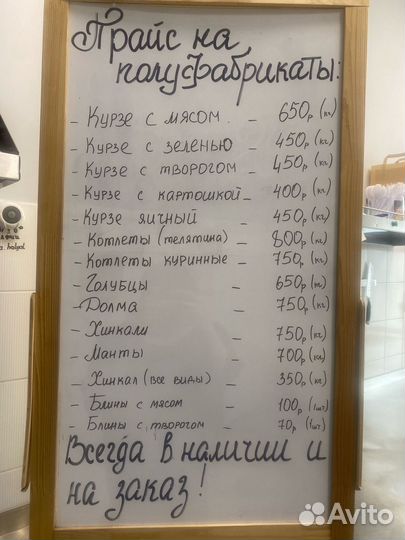 Прайс на
полуфабрикаты:
- Курзе с мясом. - 650р (кг)
- Курзе с зеленью - 450р (кг)
- Курзе с творогом - 450р (кг)
- Курзе с картошкой - 400р (кг)
- Курзе яичный - 450р (кг)
- Котлеты (телятина) - 800р (кг)
- Котлеты куринные - 750р (кг)
- Голубцы - 650р (кг)
- Долма - 750р (кг)
- Хинкали - 750р (кг)
- Манты - 700р (кг)
- Хинкал (все виды) - 350р (кг)
- Блины с мясом - 100р (1шт)
- Блины с творогом - 70р (1шт)
Всегда в наличии и
на заказ!
Avito